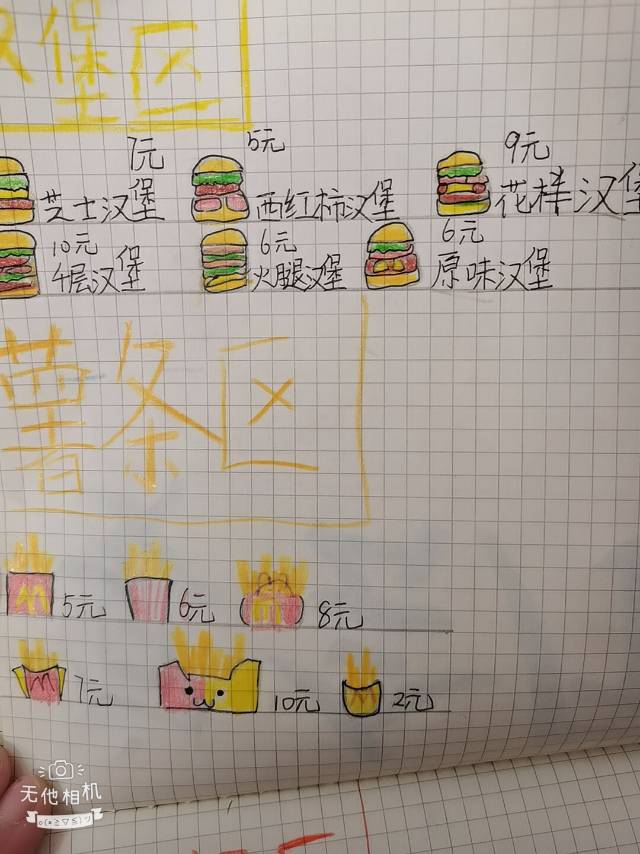 汉堡区
7元 5元 9元
芝士汉堡 西红柿汉堡 花样汉堡
10元 6元 6元
千层汉堡 火腿汉堡 原味汉堡
薯条区
5元 6元 8元
7元 10元 2元
无他相机